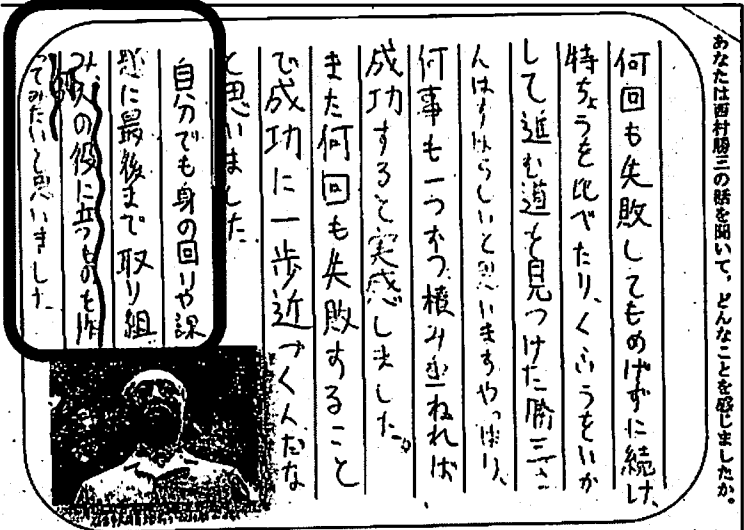 あなたは西村勝三の話を聞いて、どんなことを感じましたか。
何回も失敗してもめげずに続け、
特ちょうを比べたり、くふうをいか
して進む道を見つけた勝三さ
んはすばらしいと思いますやっぱり、
何事も一つずつ積み重ねれば
成功すると実感しました。
また何回も失敗すること
で成功に一歩近づくんだな
と思いました。
自分でも身の回りや課
題に最後まで取り組
み、人の役に立つものを作
ってみたいと思いました。